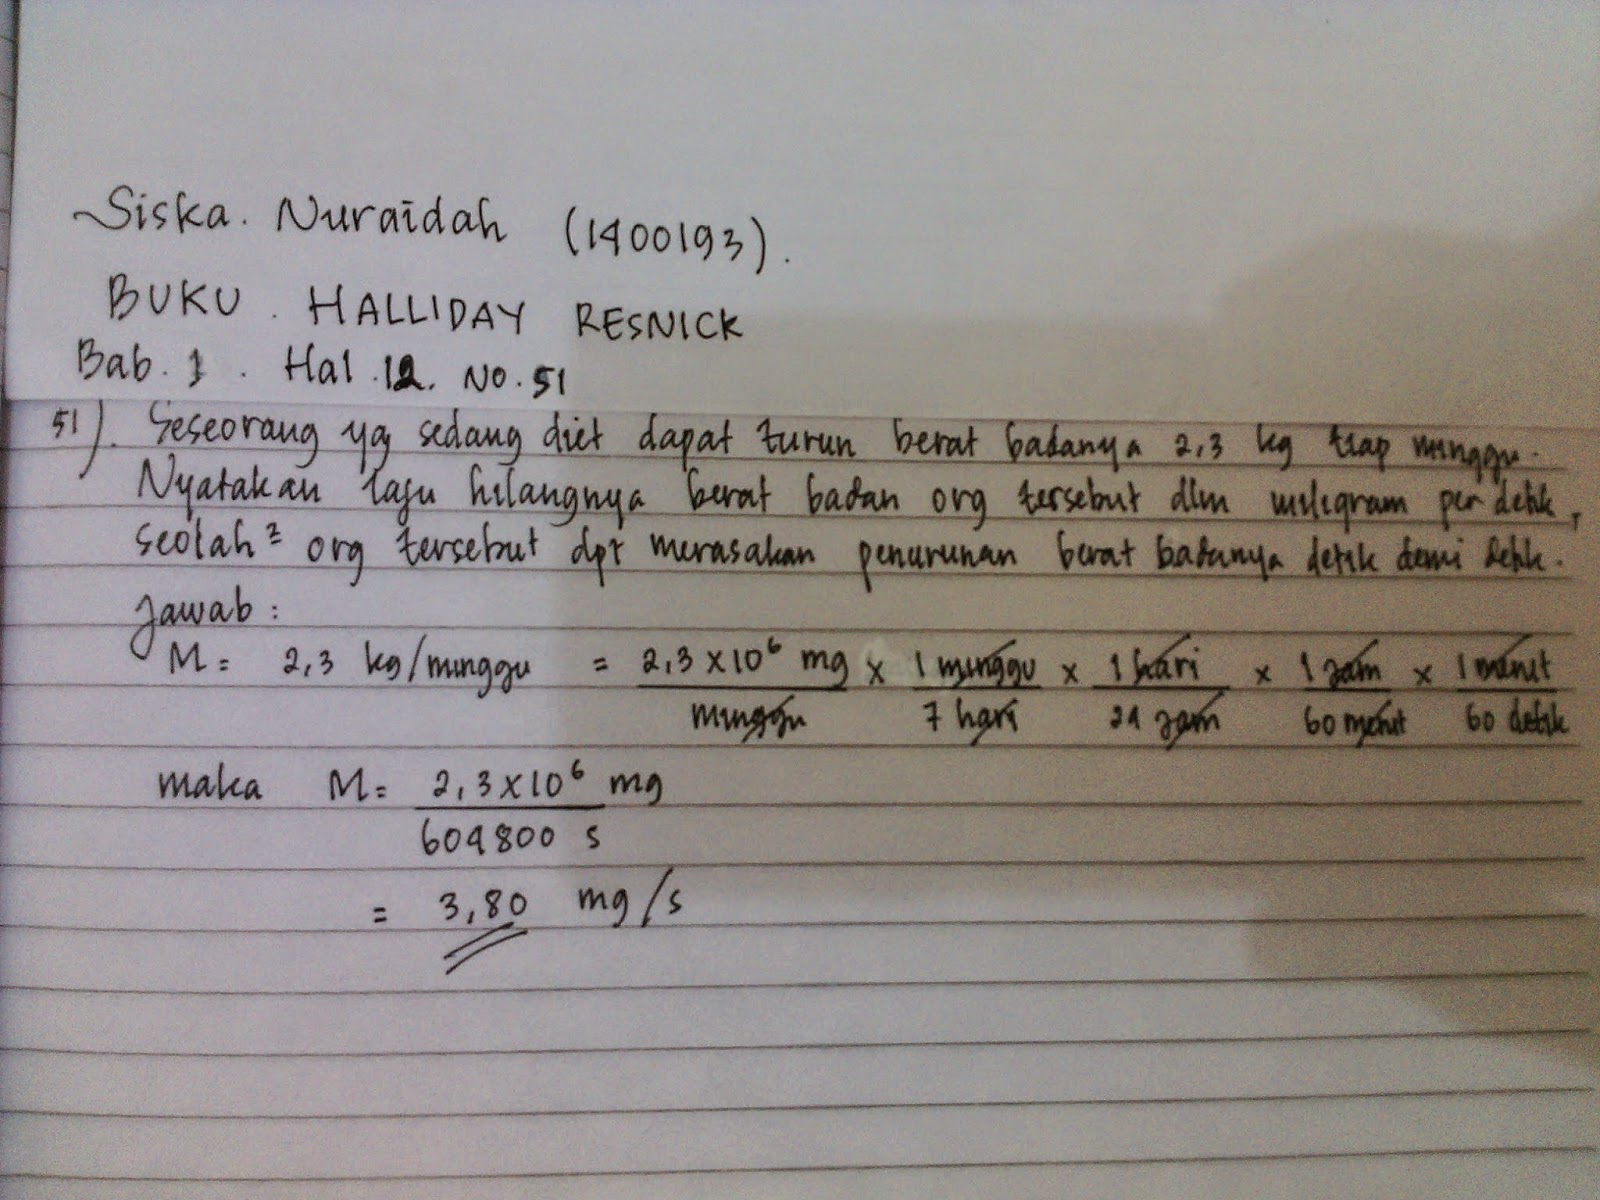 Siska. Nuraidah (1400193).
BUKU. HALLIDAY RESNICK
Bab. 1. Hal. 12. No. 51
51). Seseorang yg sedang diet dapat turun berat badanya 2,3 kg tiap minggu.
Nyatakan laju hilangnya berat badan org tersebut dlm miligram per detik,
seolah² org tersebut dpt merasakan penurunan berat badanya detik demi detik.
Jawab :
M = 2,3 kg/minggu = 2,3 x 10⁶ mg / minggu x 1 minggu / 7 hari x 1 hari / 24 jam x 1 jam / 60 menit x 1 menit / 60 detik
maka M = 2,3 x 10⁶ mg / 604800 s
= 3,80 mg/s